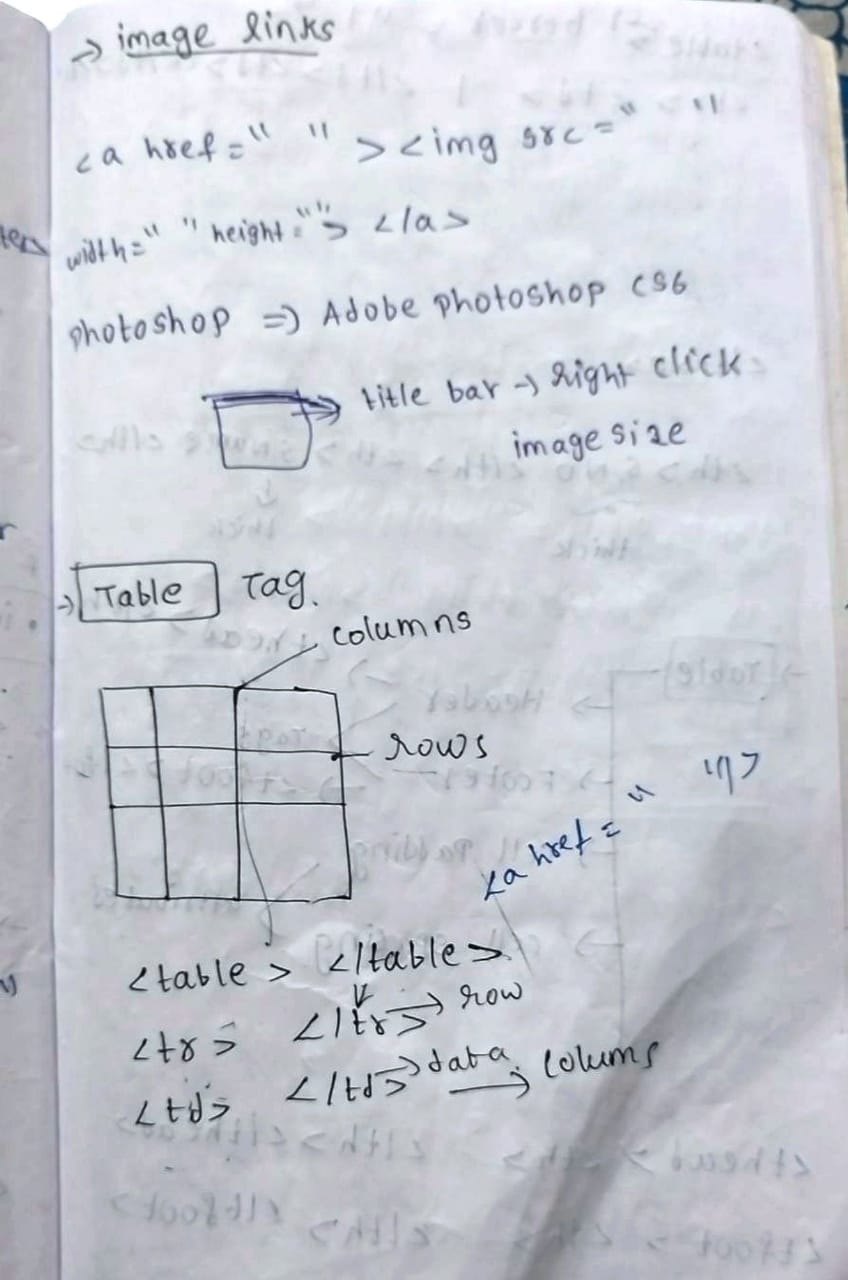 → image links
<a href=" " > <img src=" "
width=" " height=""> </a>
photoshop => Adobe photoshop CS6
title bar → Right click
image size
→ Table Tag.
columns
rows
<a href=" ">
<table> </table>
<tr> </tr> → row
<td> </td> → data → colums